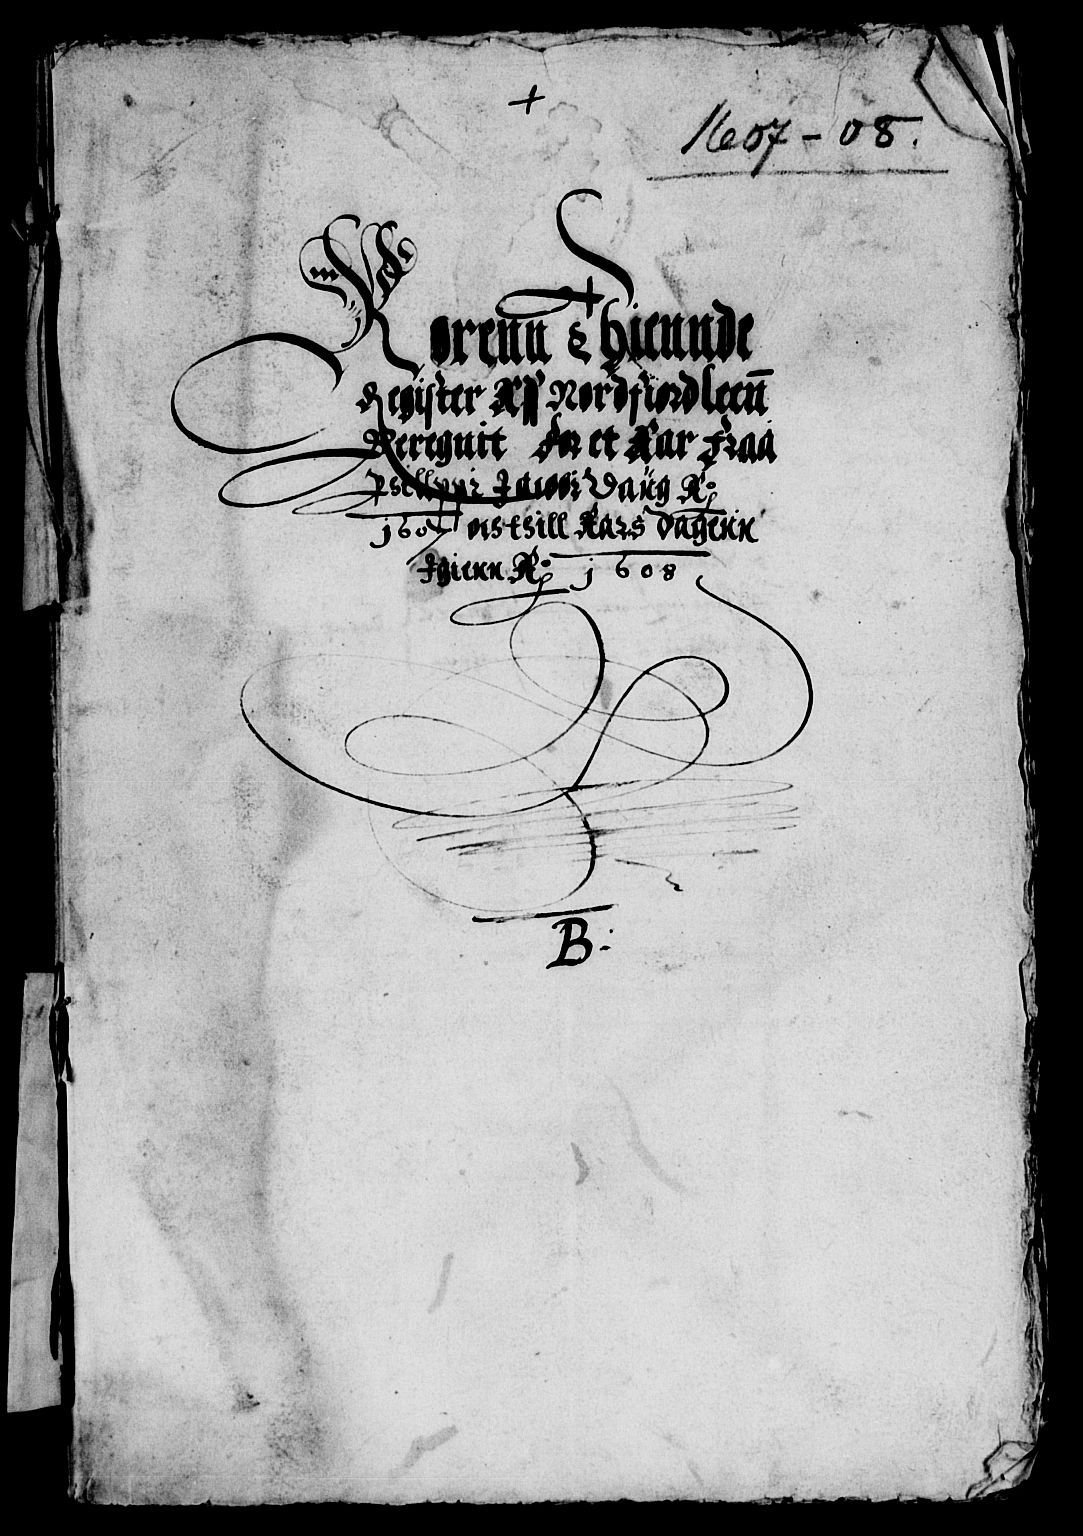 +
1607 - 08.
Korenn Thiennde
Register Aff Nordfiordleenn
Beregnit for et Aar fraa
Phillippi Jacobi Daug Aº
1607 och thill Aars dagenn
Igienn Aº 1608
B.